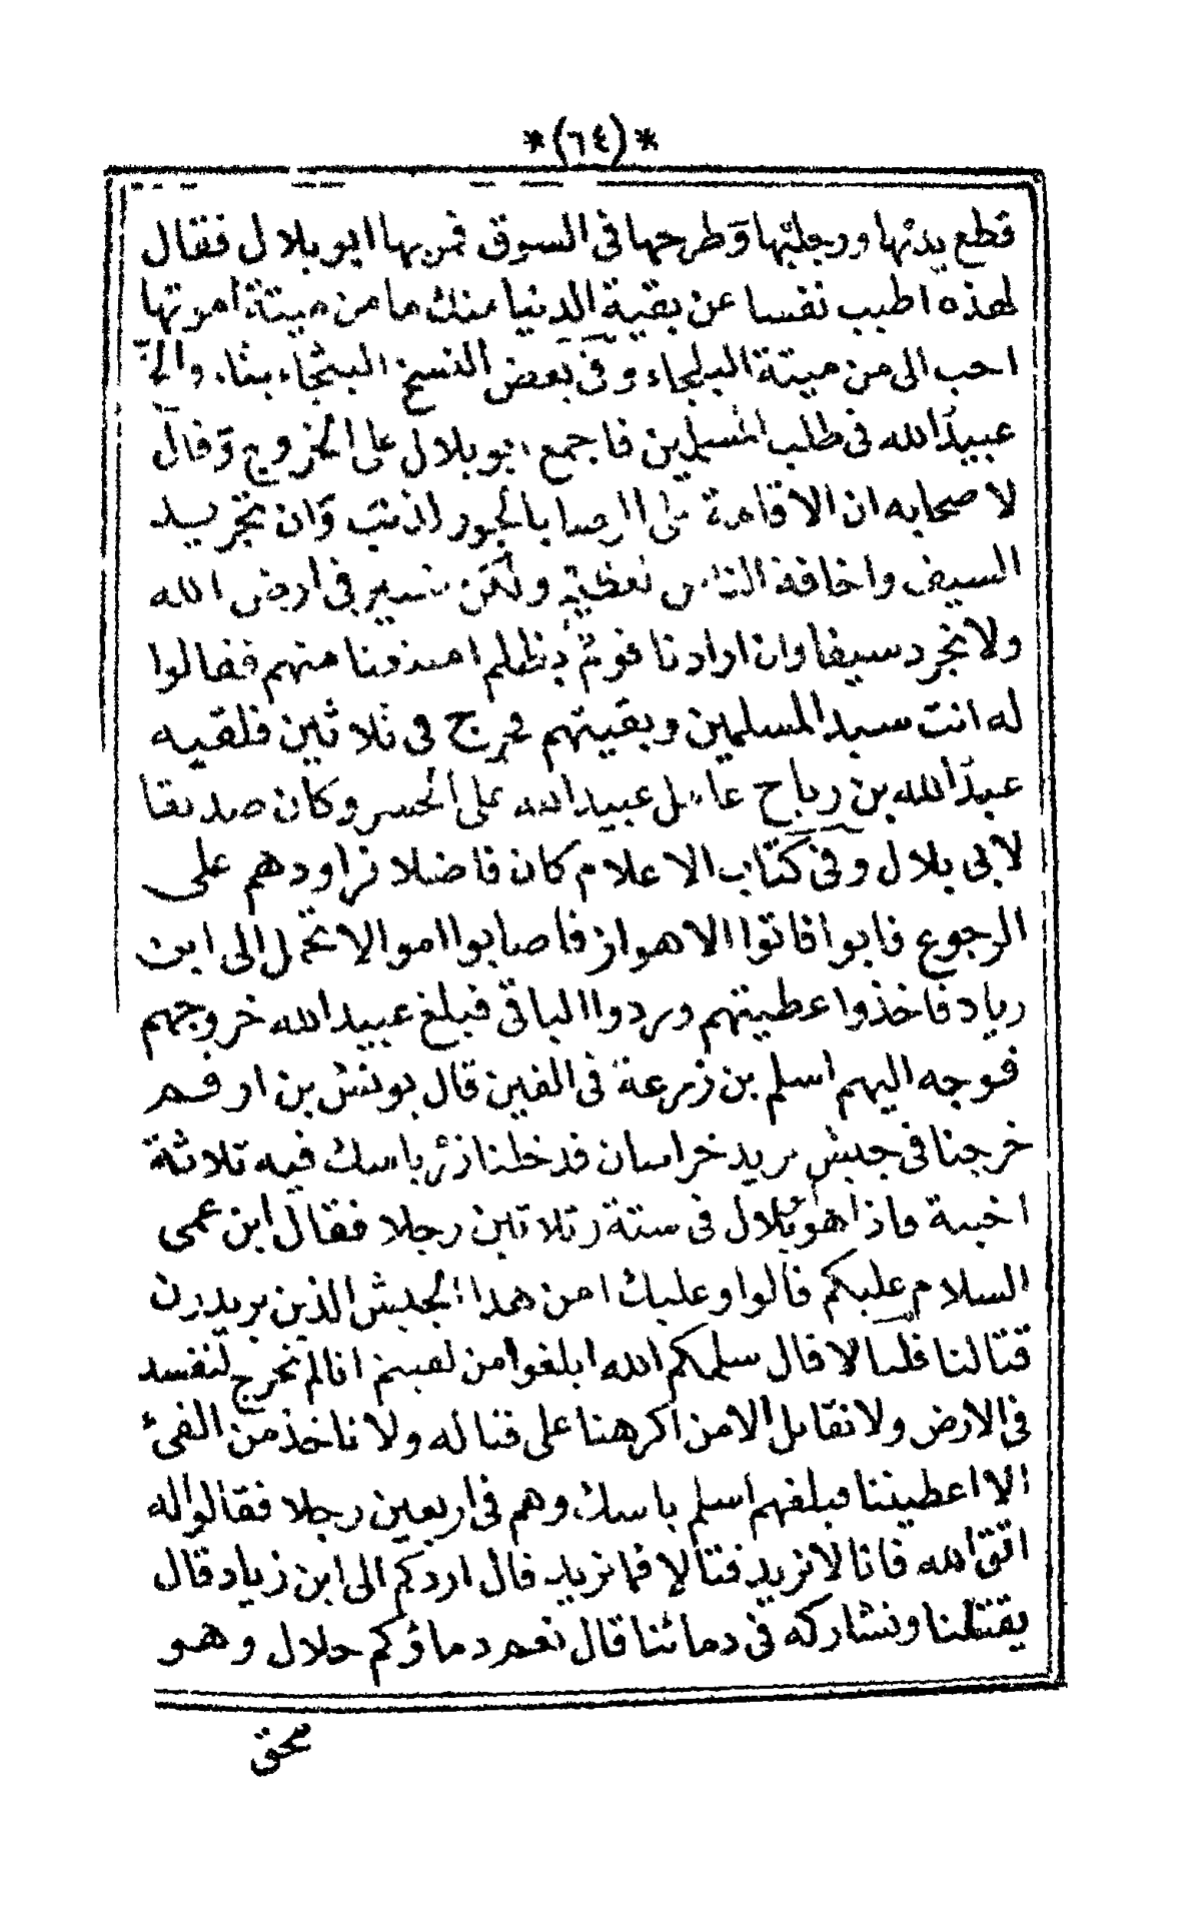 *(٦٤)*
قطع يديها ورجليها وطرحها في السوق فمر بها ابو بلال فقال
لهذه اطيب نفسا عن بقية الدنيا منك ما من ميتة اموتها
احب الى من ميتة البلجاء وفي بعض النسخ البثجاء بثاء والح
عبيد الله في طلب المسلمين فاجمع ابو بلال على الخروج وقال
لاصحابه ان الاقامة على الرضا بالجور لذنب وان تجريد
السيف واخافة الناس لعظيم ولكن نسير في ارض الله
ولا نجرد سيفا وان ارادنا قوم بظلم امتنعنا منهم فقالوا
له انت سيد المسلمين وبقيتهم فخرج في ثلاثين فلقيه
عبد الله بن رباح عامل عبيد الله على الجسر وكان صديقا
لابي بلال وفي كتاب الاعلام كان فاضلا فراودهم على
الرجوع فابوا فاتوا الاهواز فاصابوا اموالا تحمل الى ابن
زياد فاخذوا عطيتهم وردوا الباقي فبلغ عبيد الله خروجهم
فوجه اليهم اسلم بن زرعة في الفين قال يونس بن ارقم
خرجنا في جيش نريد خراسان فدخلنا باسك فيه ثلاثة
اخبية فاذا هو ابو بلال في ستة وثلاثين رجلا فقال ابن عمي
السلام عليكم قالوا وعليك امن هذا الجيش الذين يريدون
قتالنا قلنا لا قال سلمكم الله ابلغوا من لقيتم انا لم نخرج لنفسد
في الارض ولا نقاتل الا من اكرهنا على قتاله ولا ناخذ من الفيء
الا اعطيتنا فبلغهم اسلم باسك وهم في اربعين رجلا فقالوا له
اتق الله فانا لا نريد قتالا فما تريد قال اردكم الى ابن زياد قال
يقتلنا ونشاركه في دمائنا قال نعم دماؤكم حلال وهو
محق